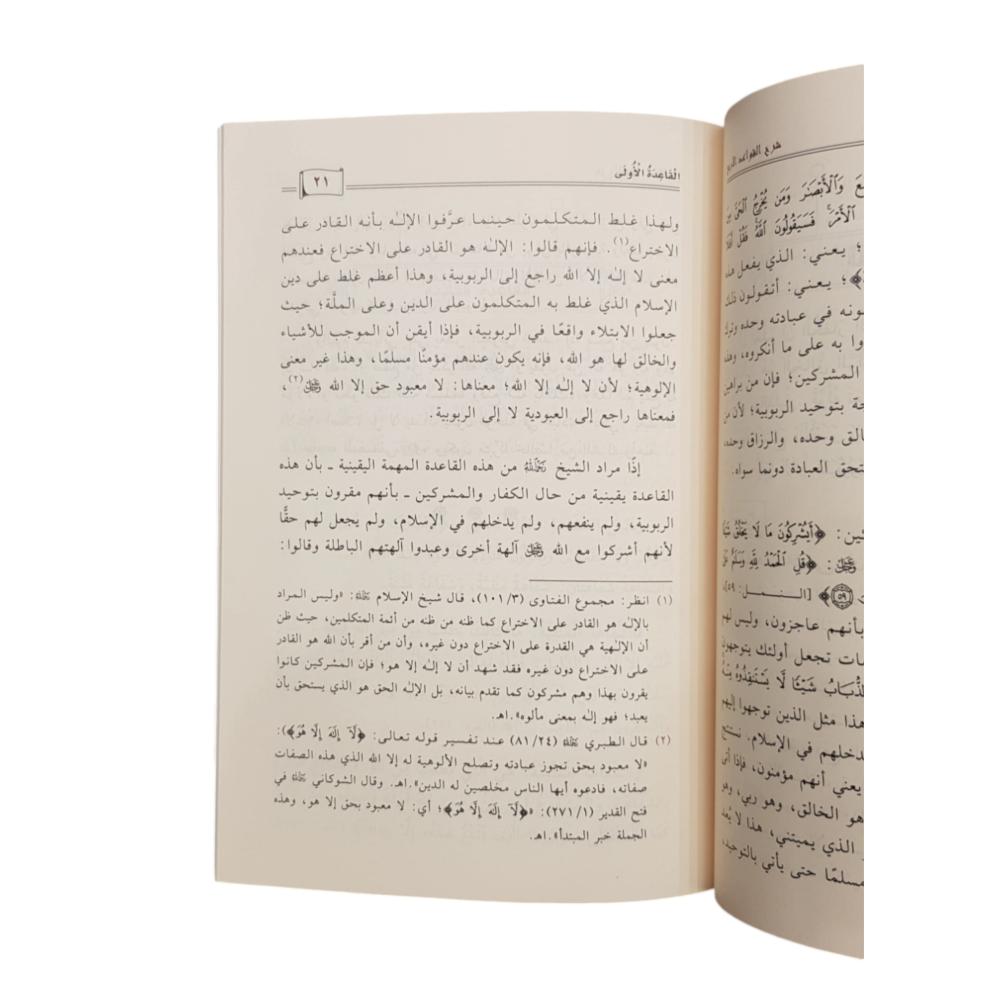 شرح القواعد الأربع
ع وَالْأَبْصَٰرَ وَمَن يُخْرِجُ الْحَيَّ مِنَ
الْأَمْرَ فَسَيَقُولُونَ اللَّهُ فَقُلْ أَفَلَا
؛ يعني: الذي يفعل هذه
﴾؛ يعني: أتقولون ذلك
ونه في عبادته وحده وترك
وا به على ما أنكروه، وهذه
المشركين؛ فإن من براهين
حة بتوحيد الربوبية؛ لأن من
الق وحده، والرزاق وحده،
تحق العبادة دونما سواه.
كين: ﴿أَيُشْرِكُونَ مَا لَا يَخْلُقُ شَيْئًا
ﷻ: ﴿قُلِ الْحَمْدُ لِلَّهِ وَسَلَٰمٌ عَلَىٰ
﴿٥٩﴾ [النمل: ٥٩]،
بأنهم عاجزون، وليس لهم
مات تجعل أولئك يتوجهون
الذُّبَابُ شَيْئًا لَّا يَسْتَنقِذُوهُ مِنْهُ
هذا مثل الذين توجهوا إليهم
يدخلهم في الإسلام. نستنتج
يعني أنهم مؤمنون، فإذا أتى
هو الخالق، وهو ربي، وهو
الذي يميتني، هذا لا يُعد
مسلمًا حتى يأتي بالتوحيد،
القَاعِدَةُ الْأُولَى
٢١
ولهذا غلط المتكلمون حينما عرَّفوا الإلٰه بأنه القادر على
الاختراع(١). فإنهم قالوا: الإلٰه هو القادر على الاختراع فعندهم
معنى لا إلٰه إلا الله راجع إلى الربوبية، وهذا أعظم غلط على دين
الإسلام الذي غلط به المتكلمون على الدين وعلى الملَّة؛ حيث
جعلوا الابتلاء واقعًا في الربوبية، فإذا أيقن أن الموجب للأشياء
والخالق لها هو الله، فإنه يكون عندهم مؤمنًا مسلمًا، وهذا غير معنى
الإلوهية؛ لأن لا إلٰه إلا الله؛ معناها: لا معبود حق إلا الله ﷻ(٢)،
فمعناها راجع إلى العبودية لا إلى الربوبية.
إذًا مراد الشيخ رحمه الله من هذه القاعدة المهمة اليقينية ـ بأن هذه
القاعدة يقينية من حال الكفار والمشركين ـ بأنهم مقرون بتوحيد
الربوبية، ولم ينفعهم، ولم يدخلهم في الإسلام، ولم يجعل لهم حقًّا
لأنهم أشركوا مع الله ﷻ آلهة أخرى وعبدوا آلهتهم الباطلة وقالوا:
(١) انظر: مجموع الفتاوى (١٠١/٣)، قال شيخ الإسلام رحمه الله: «وليس المراد
بالإلٰه هو القادر على الاختراع كما ظنه من ظنه من أئمة المتكلمين، حيث ظن
أن الإلٰهية هي القدرة على الاختراع دون غيره، وأن من أقر بأن الله هو القادر
على الاختراع دون غيره فقد شهد أن لا إلٰه إلا هو؛ فإن المشركين كانوا
يقرون بهذا وهم مشركون كما تقدم بيانه، بل الإلٰه الحق هو الذي يستحق بأن
يعبد؛ فهو إلٰه بمعنى مألوه».اهـ.
(٢) قال الطبري رحمه الله (٨١/٢٤) عند تفسير قوله تعالى: ﴿لَآ إِلَٰهَ إِلَّا هُوَ﴾):
«لا معبود بحق تجوز عبادته وتصلح الألوهية له إلا الله الذي هذه الصفات
صفاته، فادعوه أيها الناس مخلصين له الدين».اهـ. وقال الشوكاني رحمه الله في
فتح القدير (٢٧١/١): «﴿لَآ إِلَٰهَ إِلَّا هُوَ﴾؛ أي: لا معبود بحق إلا هو، وهذه
الجملة خبر المبتدأ».اهـ.